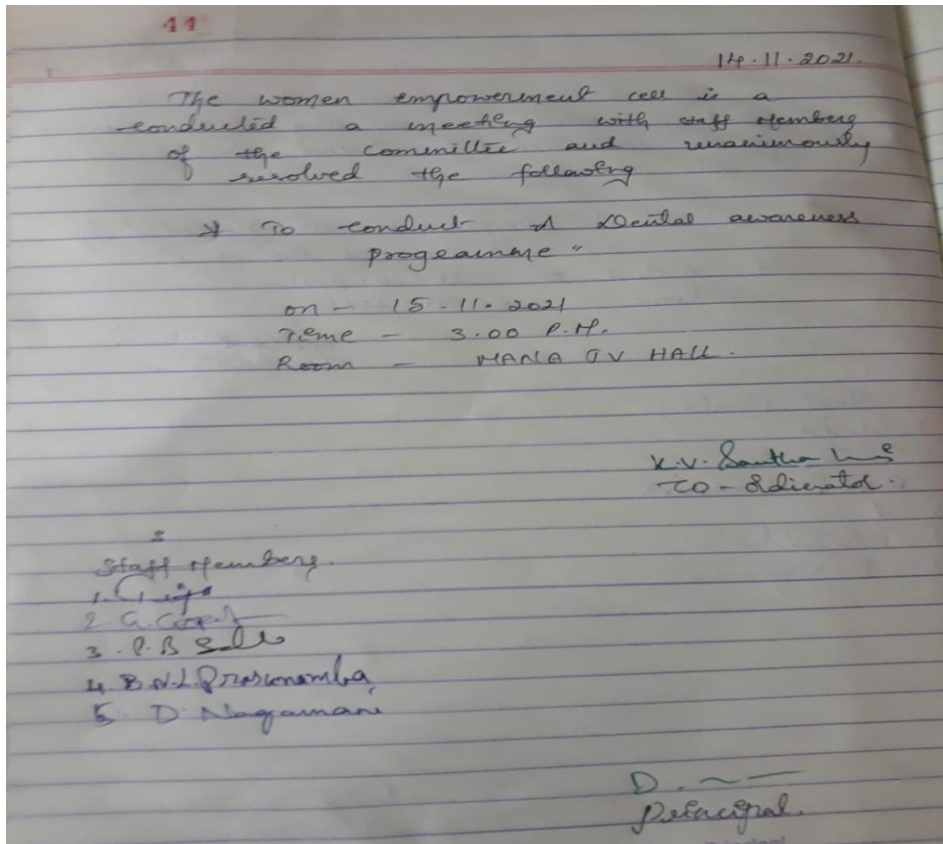 44
14.11.2021.
The women empowerment cell is a
conducted a meeting with staff Members
of the committee and unanimously
resolved the following
* To conduct A Dental awareness
programme "
on - 15.11.2021
Time - 3.00 P.M.
Room - MANA TV HALL.
K.V. Santha
CO-ordinator.
Staff Members.
1.
2 G.
3. P.B
4. B.N.L. Prasunamba
5 D. Nagamani
D.
Principal.